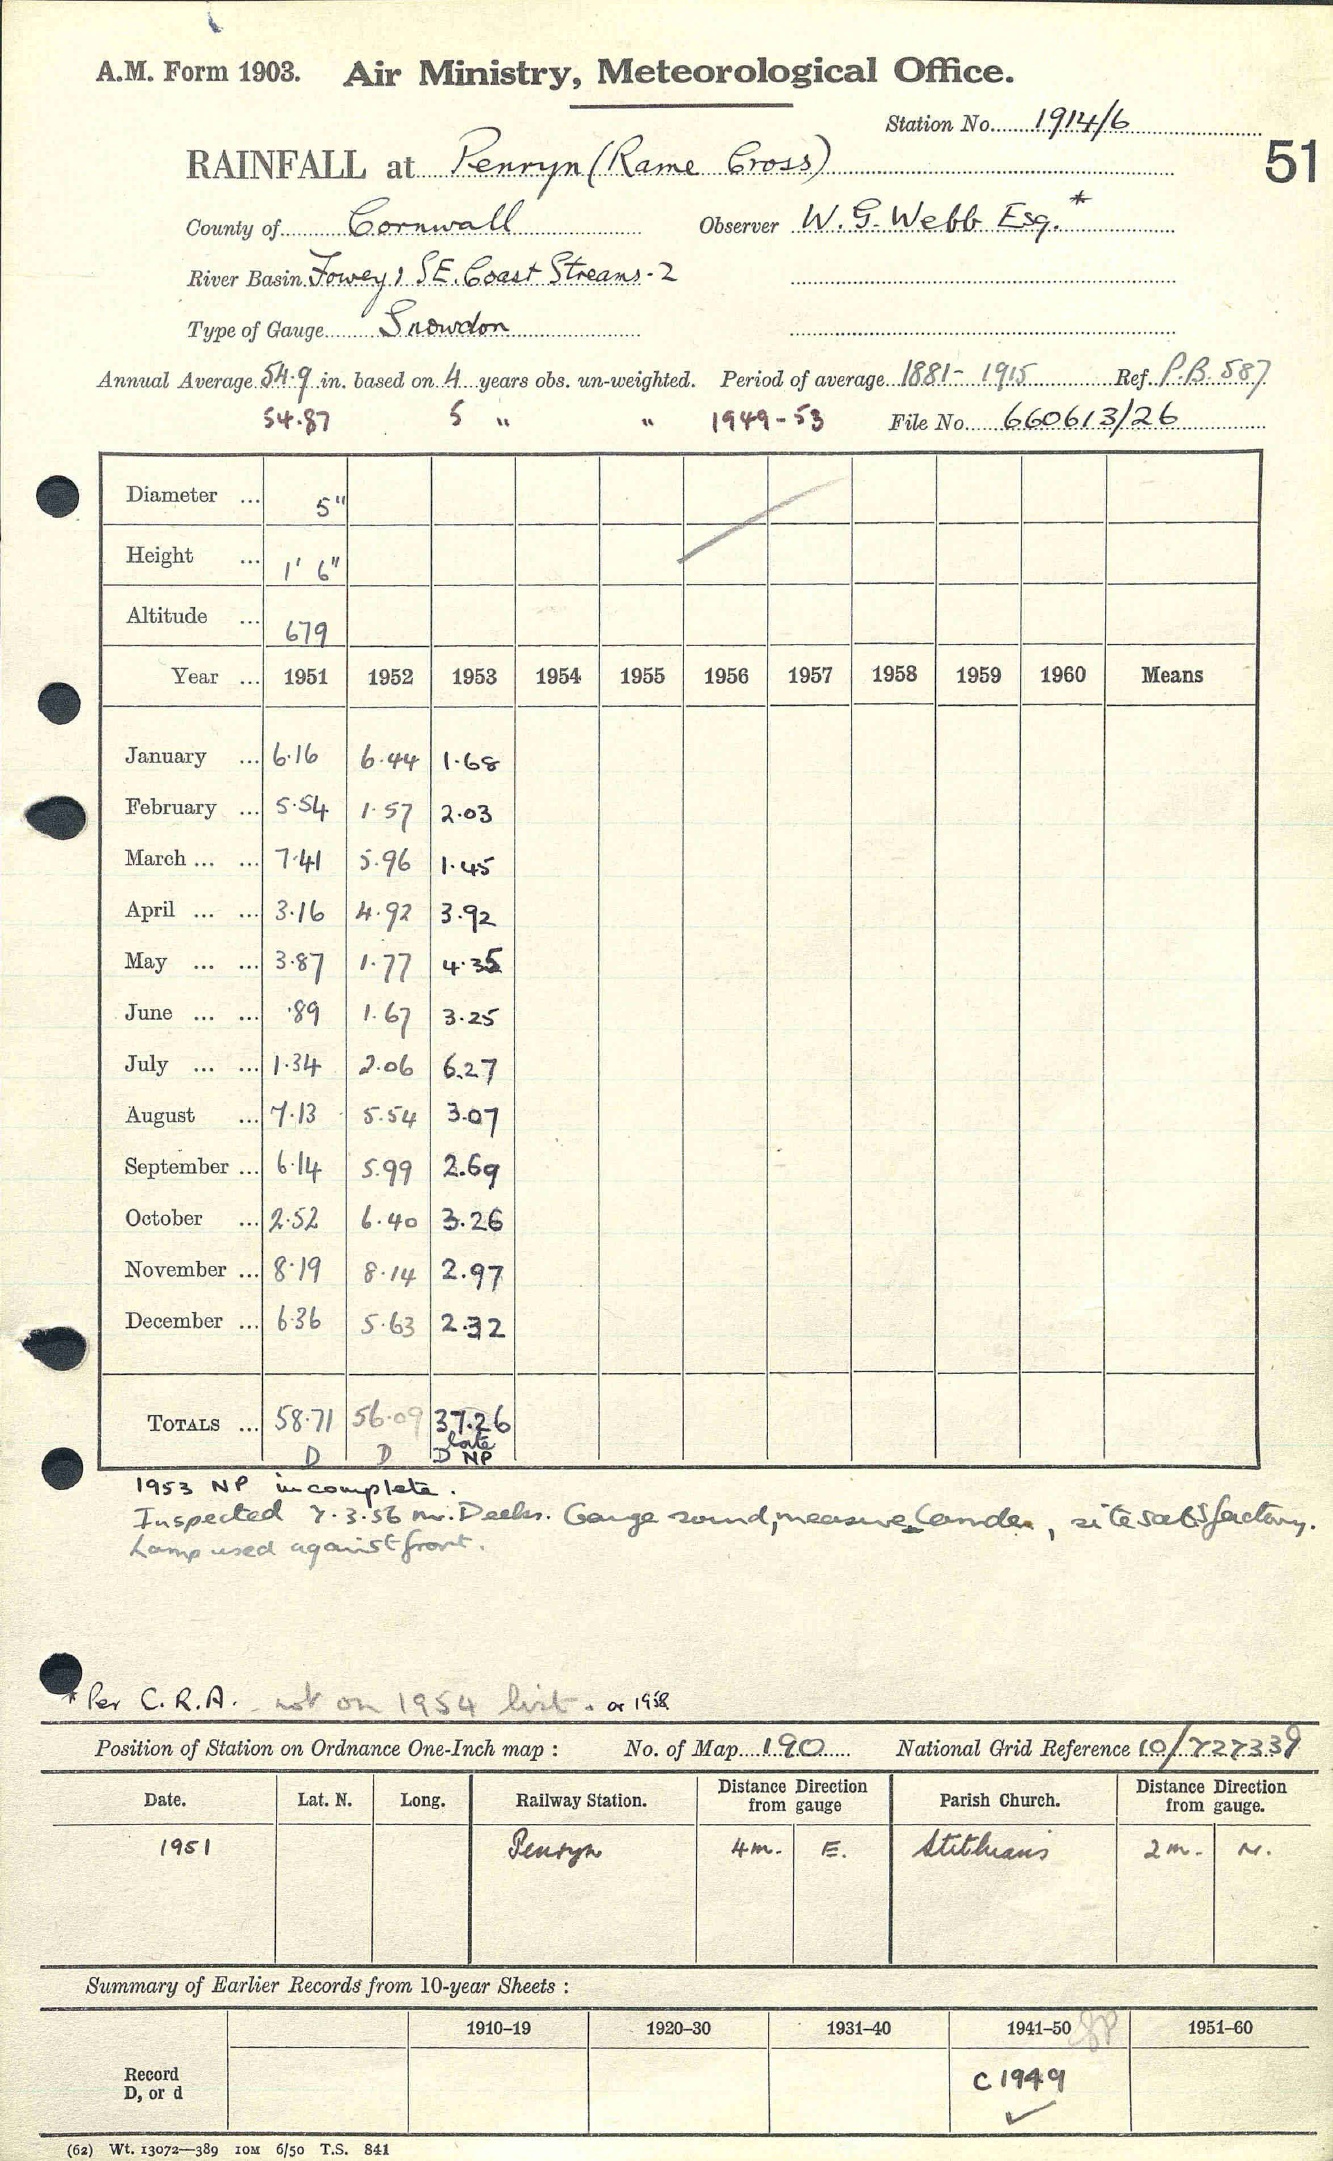 A.M. Form 1903. Air Ministry, Meteorological Office.
Station No. 1914/6
RAINFALL at Penryn (Rame Cross)
51
County of Cornwall Observer W. G. Webb Esq. *
River Basin Fowey & SE. Coast Streams - 2
Type of Gauge Snowdon
Annual Average 54.9 in. based on 4 years obs. un-weighted. Period of average 1881 - 1915 Ref. P.B. 587
54.87 5 " " 1949 - 53 File No. 660613/26
Diameter ... 5"
Height ... 1' 6"
Altitude ... 679
Year ... 1951 1952 1953 1954 1955 1956 1957 1958 1959 1960 Means
January ... 6.16 6.44 1.68
February ... 5.54 1.57 2.03
March ... ... 7.41 5.96 1.45
April ... ... 3.16 4.92 3.92
May ... ... 3.87 1.77 4.35
June ... ... .89 1.67 3.25
July ... ... 1.34 2.06 6.27
August ... 7.13 5.54 3.07
September ... 6.14 5.99 2.69
October ... 2.52 6.40 3.26
November ... 8.19 8.14 2.97
December ... 6.36 5.63 2.32
TOTALS ... 58.71 56.09 37.26
late
D D D NP
1953 NP incomplete.
Inspected 7.3.56 Mr. Deeks. Gauge sound, measure Camden, site satisfactory.
Lamp used against frost.
* Per C.R.A. not on 1954 list. or 1958
Position of Station on Ordnance One-Inch map : No. of Map 190 National Grid Reference 10/727339
Date. Lat. N. Long. Railway Station. Distance Direction from gauge Parish Church. Distance Direction from gauge.
1951 Penryn 4 m. E. Stithians 2 m. N.
Summary of Earlier Records from 10-year Sheets :
1910–19 1920–30 1931–40 1941–50 1951–60
Record
D, or d
C 1949
(62) Wt. 13072—389 10M 6/50 T.S. 841